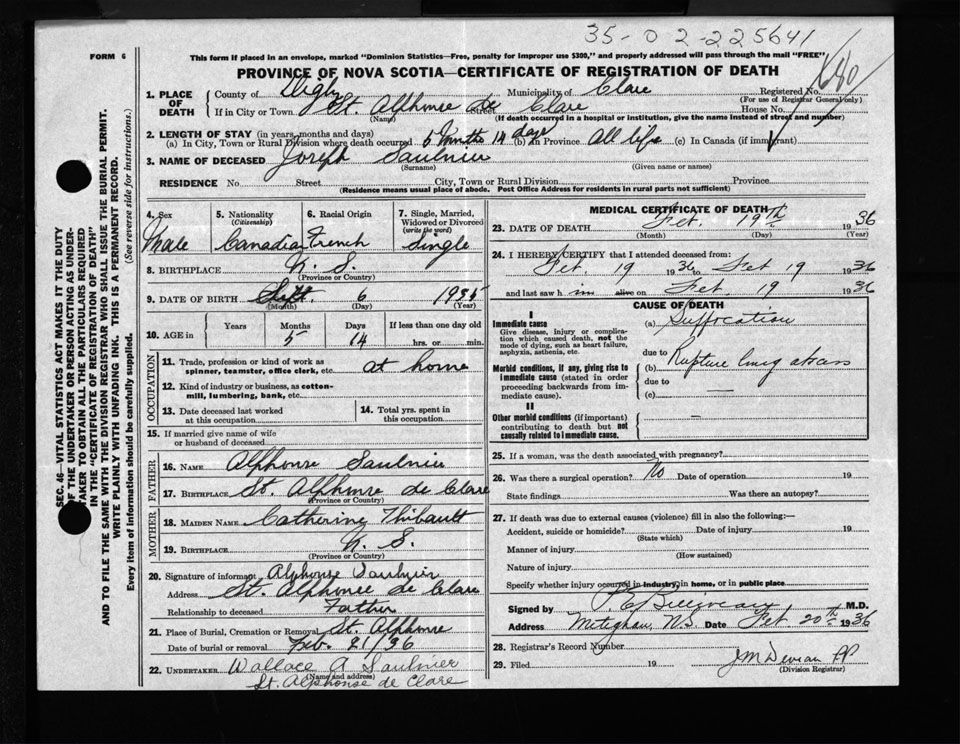 35-02-225641
FORM 6
This form if placed in an envelope, marked "Dominion Statistics—Free, penalty for improper use $300," and properly addressed will pass through the mail "FREE"
PROVINCE OF NOVA SCOTIA—CERTIFICATE OF REGISTRATION OF DEATH
680
1. PLACE OF DEATH
County of Digby Municipality of Clare Registered No.
(For use of Registrar General only)
If in City or Town St. Alphonse de Clare Street House No.
(Name) (If death occurred in a hospital or institution, give the name instead of street and number)
2. LENGTH OF STAY (in years, months and days)
(a) In City, Town or Rural Division where death occurred 5 Months 14 days (b) in Province All life (c) In Canada (if immigrant)
3. NAME OF DECEASED Joseph Saulnier
(Surname) (Given name or names)
RESIDENCE No. Street City, Town or Rural Division Province
(Residence means usual place of abode. Post Office Address for residents in rural parts not sufficient)
4. Sex
Male
5. Nationality
(Citizenship)
Canadian
6. Racial Origin
French
7. Single, Married, Widowed or Divorced
(write the word)
Single
8. BIRTHPLACE N. S.
(Province or Country)
9. DATE OF BIRTH Sept. 6 1935
(Month) (Day) (Year)
10. AGE in Years Months Days If less than one day old
5 14 hrs. or min.
OCCUPATION
11. Trade, profession or kind of work as
spinner, teamster, office clerk, etc. at home
12. Kind of industry or business, as cotton-
mill, lumbering, bank, etc.
13. Date deceased last worked
at this occupation
14. Total yrs. spent in
this occupation
15. If married give name of wife
or husband of deceased
FATHER
16. NAME Alphonse Saulnier
17. BIRTHPLACE St. Alphonse de Clare
(Province or Country)
MOTHER
18. MAIDEN NAME Catherine Thibault
19. BIRTHPLACE N. S.
(Province or Country)
20. Signature of informant Alphonse Saulnier
Address St. Alphonse de Clare
Relationship to deceased Father
21. Place of Burial, Cremation or Removal St. Alphonse
Date of burial or removal Feb. 21/36
22. UNDERTAKER Wallace A Saulnier
(Name and address)
St. Alphonse de Clare
MEDICAL CERTIFICATE OF DEATH
23. DATE OF DEATH Feb. 19th 1936
(Month) (Day) (Year)
24. I HEREBY CERTIFY that I attended deceased from:
Feb 19 1936 to Feb 19 1936
and last saw him alive on Feb 19 1936
CAUSE OF DEATH
I
Immediate cause
Give disease, injury or complication which caused death, not the mode of dying, such as heart failure, asphyxia, asthenia, etc.
(a) Suffocation
due to
Morbid conditions, if any, giving rise to immediate cause (stated in order proceeding backwards from immediate cause).
(b) Rupture lung
due to —
(c) —
II
Other morbid conditions (if important) contributing to death but not causally related to immediate cause.
25. If a woman, was the death associated with pregnancy?
26. Was there a surgical operation? No Date of operation 19
State findings Was there an autopsy?
27. If death was due to external causes (violence) fill in also the following:—
Accident, suicide or homicide? Date of injury 19
(State which)
Manner of injury
(How sustained)
Nature of injury
Specify whether injury occurred in industry, in home, or in public place
Signed by P. E. Belliveau M.D.
Address Meteghan, N.S. Date Feb 20th 1936
28. Registrar's Record Number
29. Filed 19
(Division Registrar)
SEC. 46—VITAL STATISTICS ACT MAKES IT THE DUTY
OF THE UNDERTAKER OR PERSON ACTING AS UNDER-
TAKER TO OBTAIN ALL THE PARTICULARS REQUIRED
IN THE "CERTIFICATE OF REGISTRATION OF DEATH"
AND TO FILE THE SAME WITH THE DIVISION REGISTRAR WHO SHALL ISSUE THE BURIAL PERMIT.
WRITE PLAINLY WITH UNFADING INK. THIS IS A PERMANENT RECORD.
Every item of information should be carefully supplied. (See reverse side for instructions.)